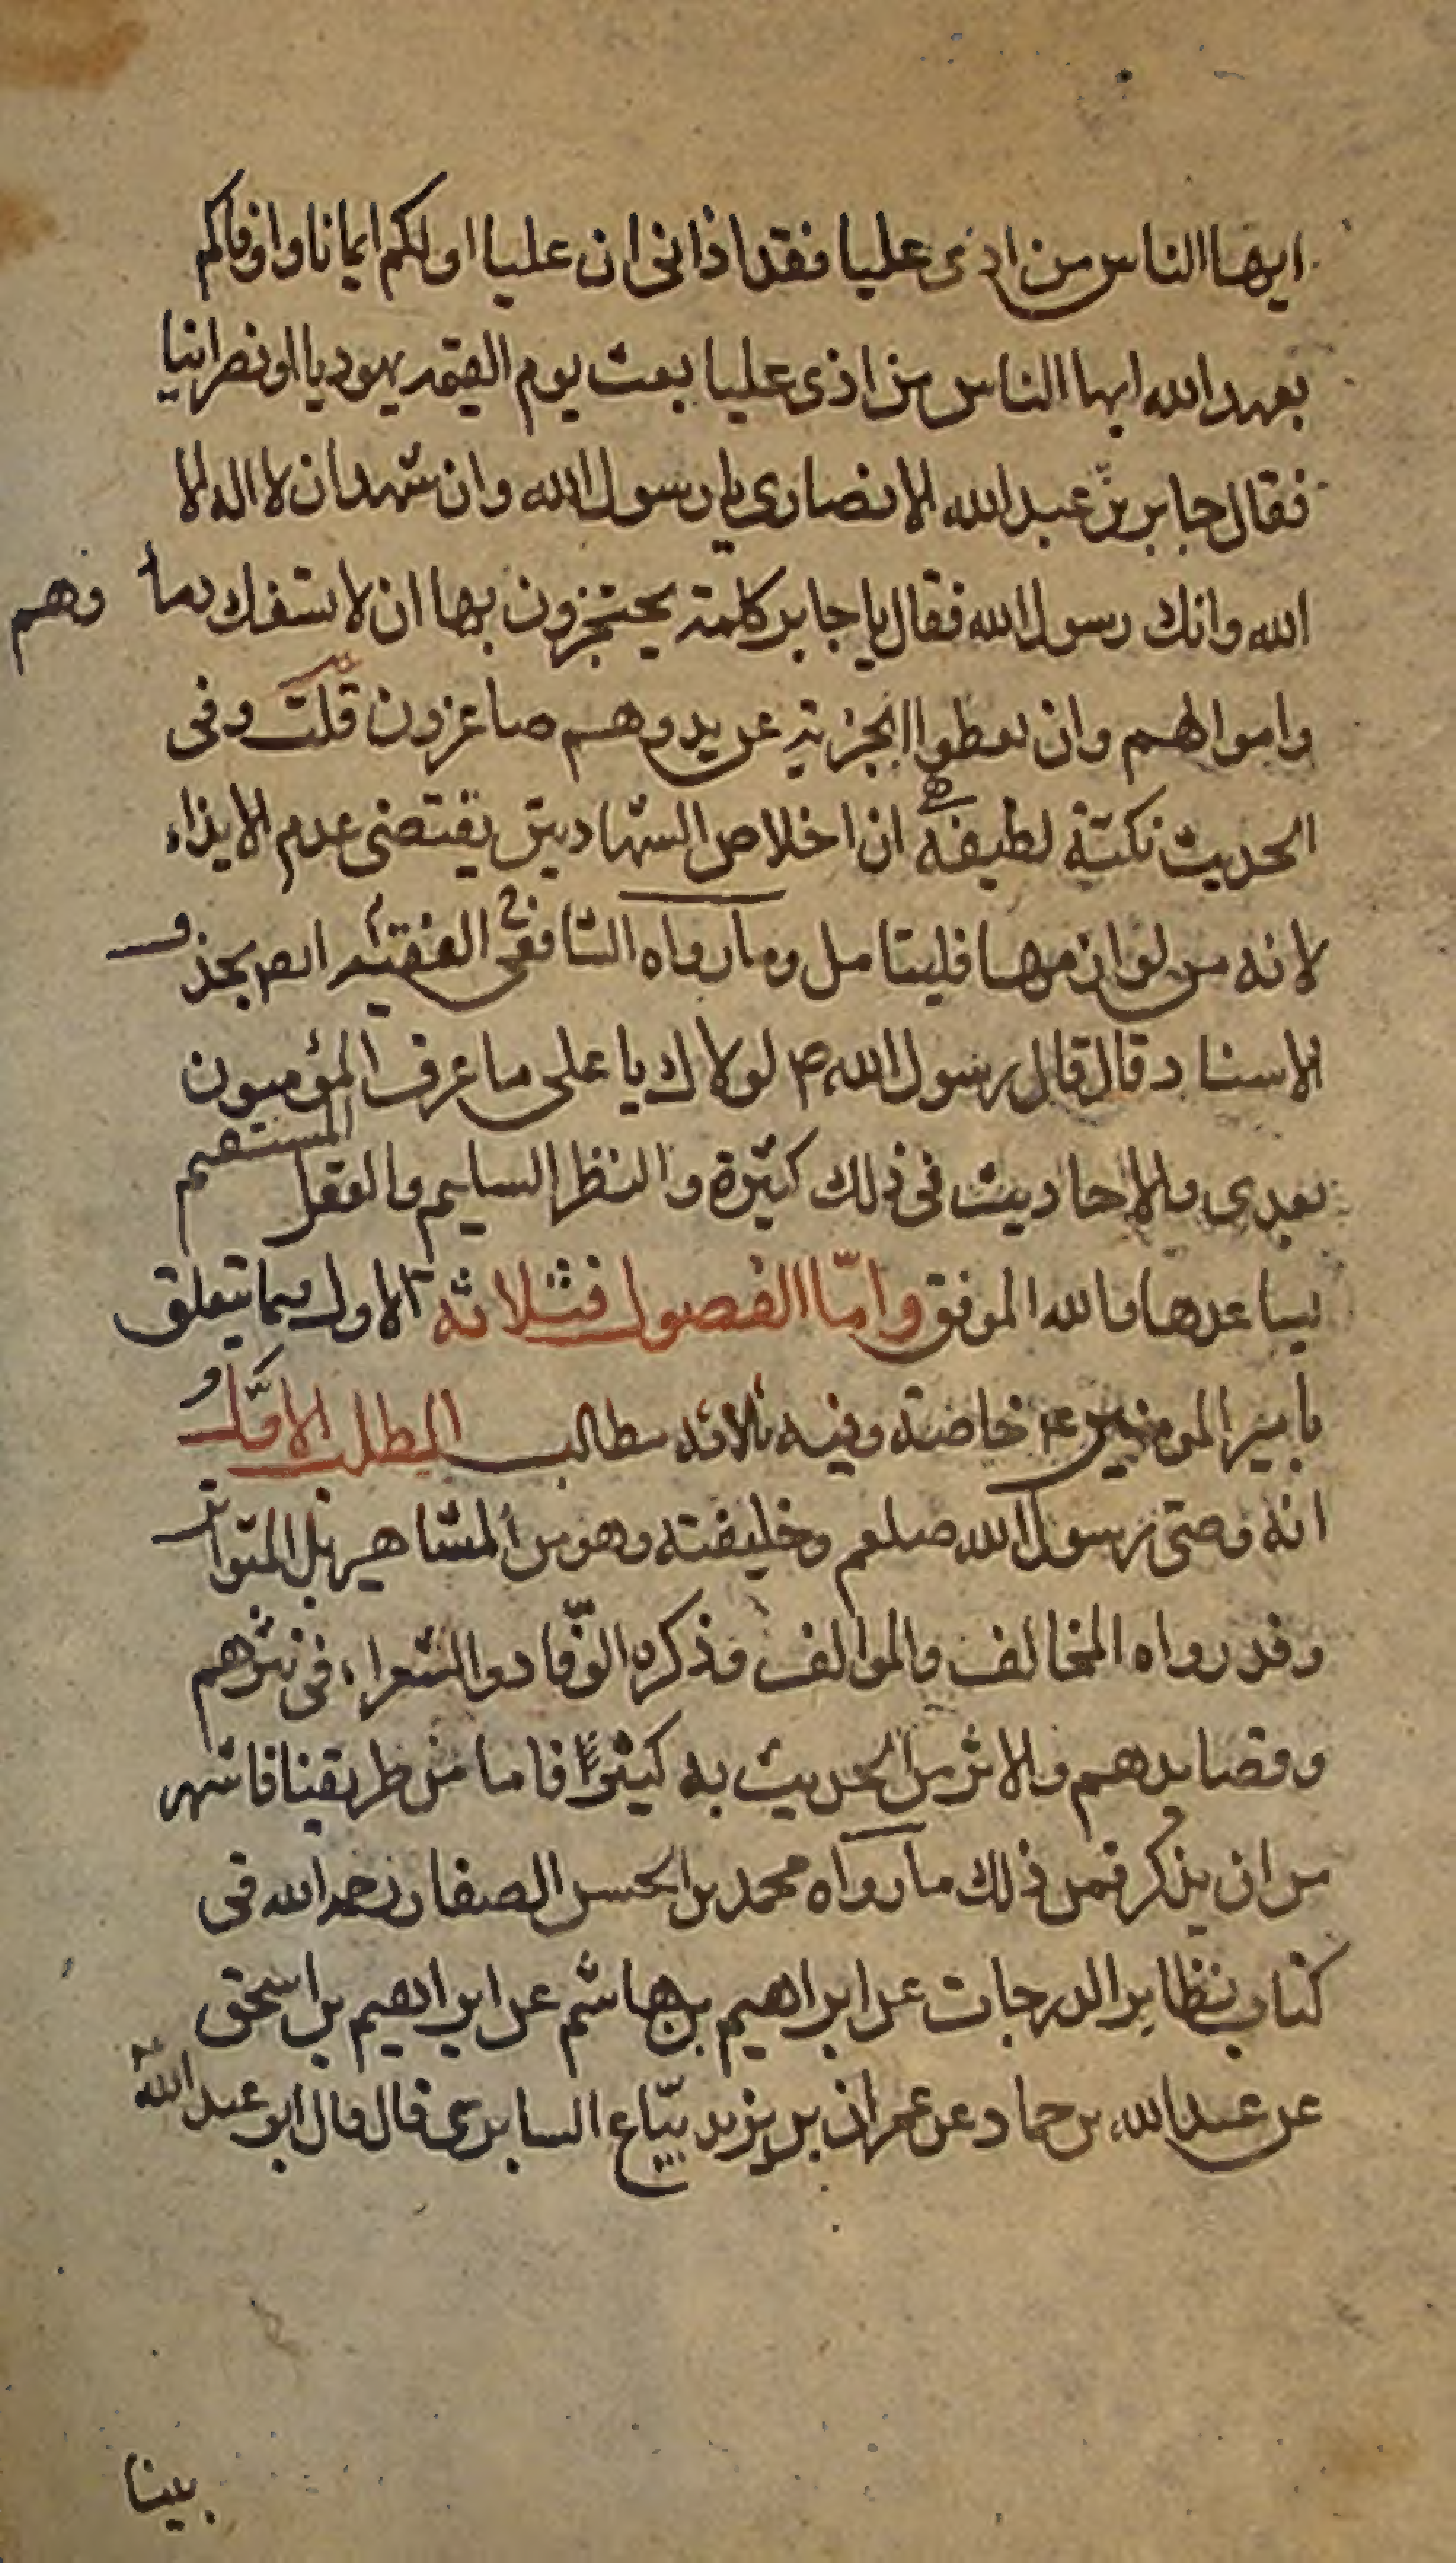 ايها الناس من اذى عليا فقد اذانى ان عليا اولكم ايمانا واوفاكم
بعهد الله ايها الناس من اذى عليا بعث يوم القيمه يهوديا او نصرانيا
فقال جابر بن عبد الله الانصارى يا رسول الله وان شهد ان لا اله الا
الله وانك رسول الله فقال يا جابر كلمة يحتجزون بها ان لا تسفك دماؤهم
واموالهم وان يعطوا الجزية عن يد وهم صاغرون قلت وفى
الحديث نكتة لطيفة هى ان اخلاص الشهادتين يقتضى عدم الايذاء
لانه من لوازمها فليتامل وما رواه الشافعى الفقيه ايضا بحذف
الاسناد قال قال رسول الله ص لولاك يا على ما عرف المؤمنون
بعدى والاحاديث فى ذلك كثيرة والنظر السليم والعقل المستقيم
يساعدها والله الموفق وامّا الفصول فثلاثة الاول فيما يتعلق
بامير المومنين ع خاصة وفيه ثلاثه مطالب المطلب الاوّل
انه وصى رسول الله صلعم وخليفته وهو من المشاهير بل المتواتر
وقد رواه المخالف والموالف وذكره الوفّاد والشعراء فى نثرهم
وقصايدهم والاثر من الحديث به كثير فاما من طريقنا فاشهر
من ان يذكر فمن ذلك ما رواه محمد بن الحسن الصفار رحمه الله فى
كتاب نظاير الدرجات عن ابراهيم بن هاشم عن ابراهيم بن اسحق
عن عبد الله بن حماد عن عمران بن يزيد بيّاع السابرى قال قال ابو عبد الله
بينا